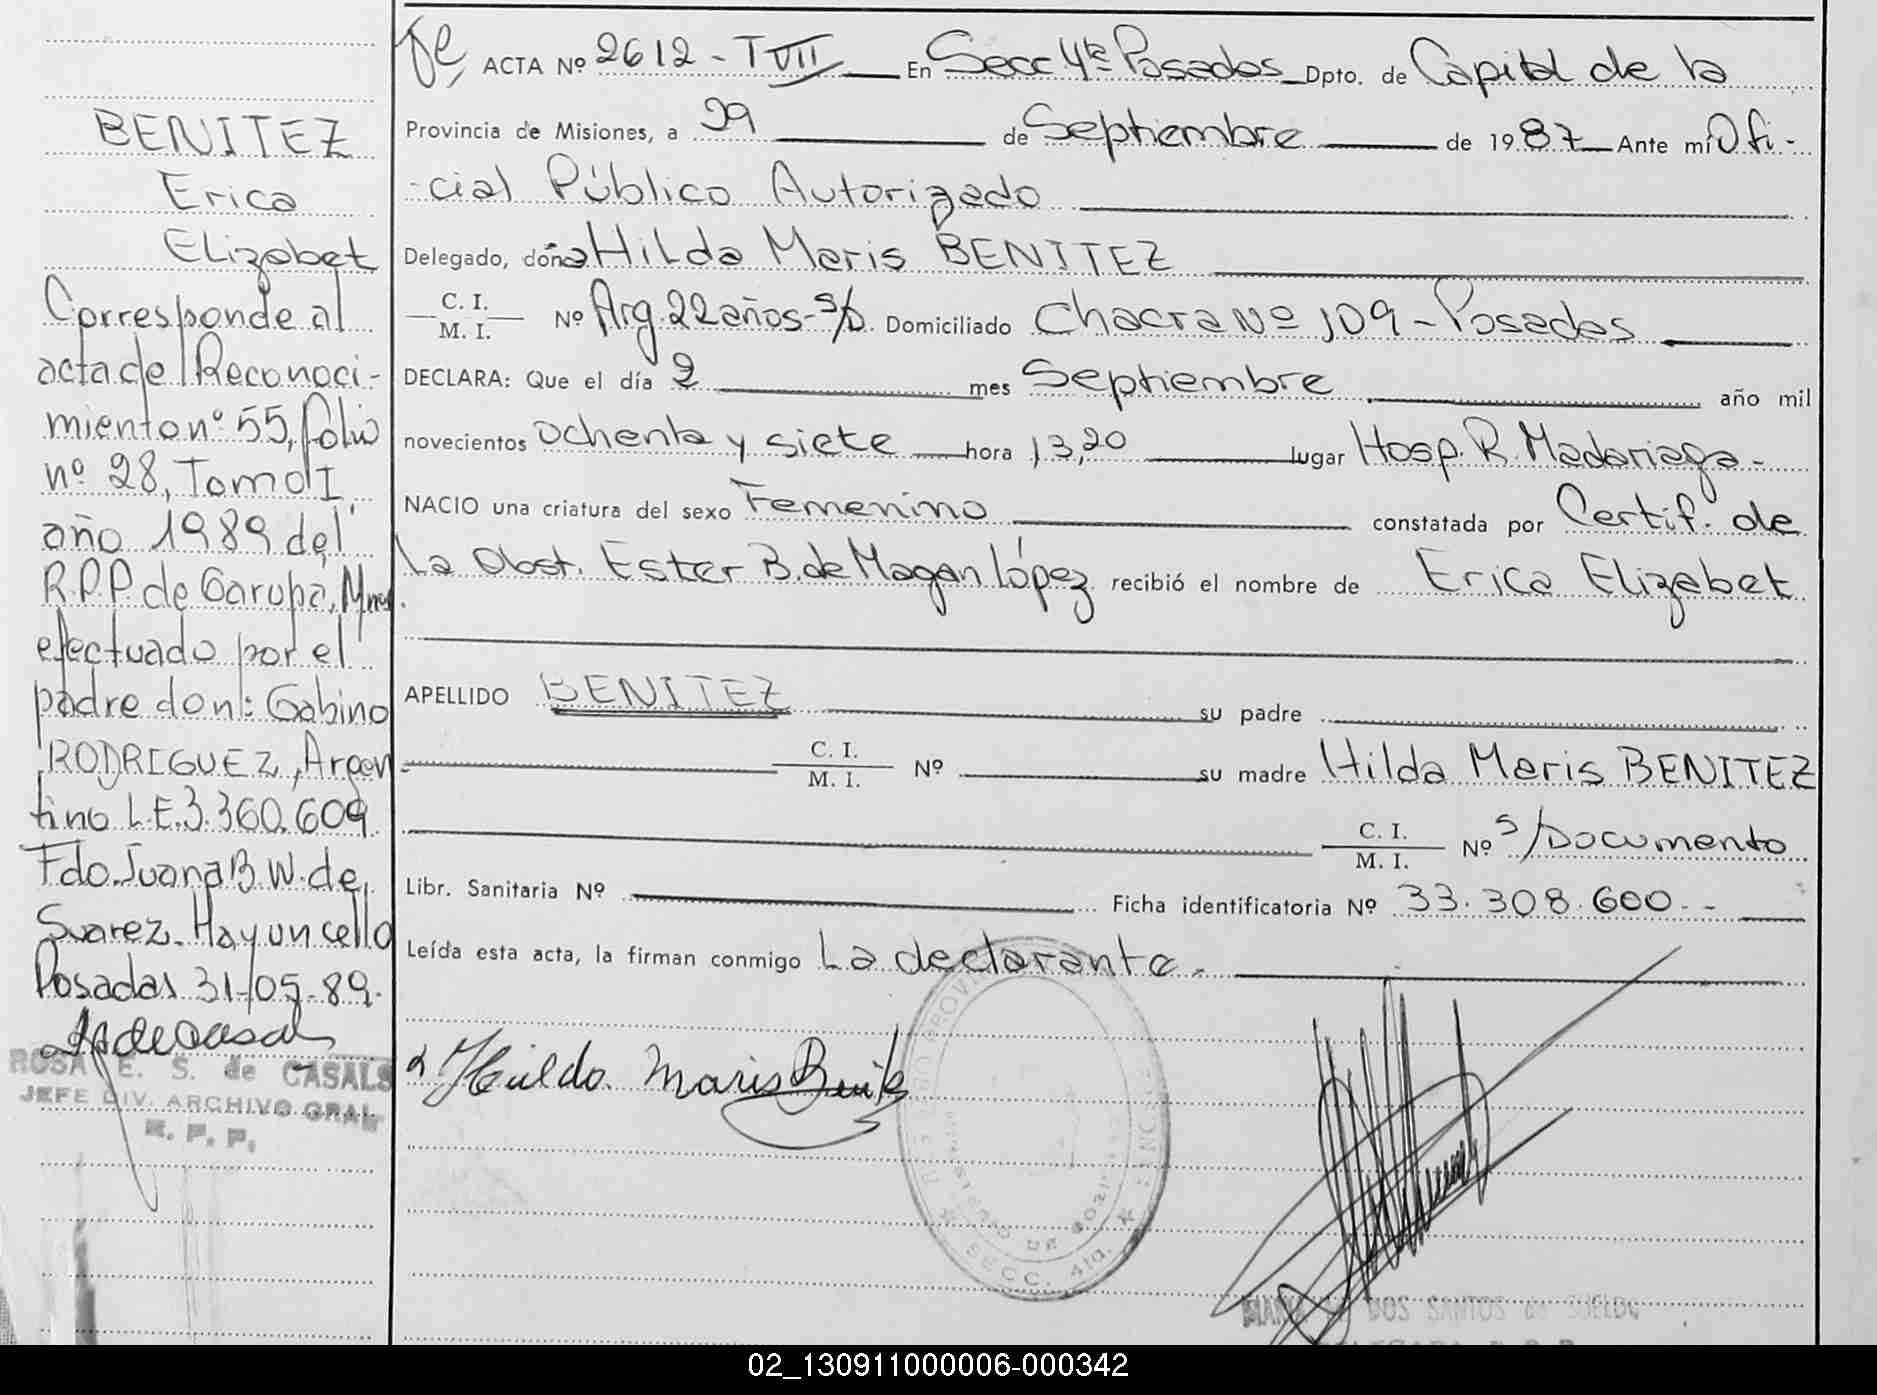 BENITEZ
Erica
Elizabet
Corresponde al
acta de Reconoci-
miento nº 55, folio
nº 28, Tomo I
año 1989 del
R.P.P. de Garupá, Mnes.
efectuado por el
padre don: Gabino
RODRIGUEZ, Argen
tino L.E. 3.360.609
Fdo. Juana B. W. de
Suarez. Hay un sello
Posadas 31-05-89.
ROSA E. S. de CASALS
JEFE DIV. ARCHIVO GRAL.
R. P. P.
ACTA Nº 2612 - T VII En Secc 4ta Posadas Dpto. de Capital de la
Provincia de Misiones, a 29 de Septiembre de 1987 Ante mí Ofi-
cial Público Autorizado
Delegado, doña Hilda Meris BENITEZ
C. I.
M. I. Nº Arg. 22 años - s/D. Domiciliado Chacra Nº 109 - Posadas
DECLARA: Que el día 2 mes Septiembre año mil
novecientos ochenta y siete hora 13,20 lugar Hosp. R. Madariaga -
NACIO una criatura del sexo Femenino constatada por Certif. de
la Obst. Ester B. de Magan López recibió el nombre de Erica Elizabet
APELLIDO BENITEZ su padre
C. I.
M. I. Nº su madre Hilda Meris BENITEZ
C. I.
M. I. Nº s/Documento
Libr. Sanitaria Nº Ficha identificatoria Nº 33.308.600 - -
Leída esta acta, la firman conmigo La declarante -
Hilda Maris
SECC. 4ta.
DOS SANTOS de SUELDO
02_130911000006-000342